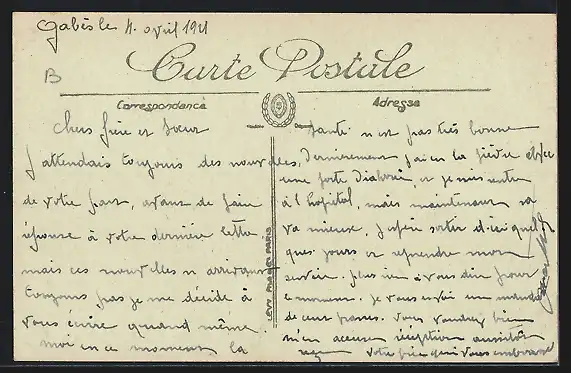 Gabès le 4. avril 1921
B
Carte Postale
Correspondance
Adresse
Chers frère et Sœur
J'attendais toujours des nouvelles,
de votre part, avant de faire
réponse à votre dernière lettre
mais ces nouvelles n'arrivant
toujours pas je me décide à
vous écrire quand même.
Moi en ce moment la
santé n'est pas très bonne
Dernièrement j'ai eu la fièvre avec
une forte diahrée, et je suis entré
à l'hopital, mais maintenant sa
va mieux. J'espère sortir d'ici quel
ques jours et reprendre mon
service. Plus rien à vous dire pour
le moment. Je vous envoi un mandat
de cent francs. Vous voudrez bien
m'en accuser réception aussitôt
reçu
Votre frère qui vous embrasse
LEVY PARIS